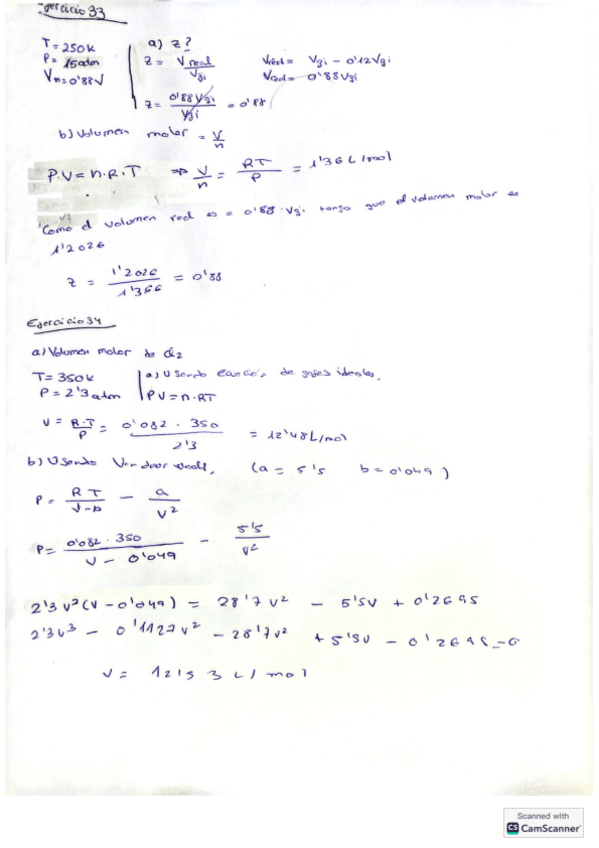 Ejercicio 33
T = 250K
P = 15 atm
Vm = 0'88V
a) Z?
Z = V real / Vgi
Vreal = Vgi - 0'12Vgi
Vreal = 0'88Vgi
Z = 0'88 Vgi / Vgi = 0'88
b) Volumen molar = V/n
P.V = n.R.T ⇒ V/n = RT/P = 1'36 L/mol
Como el volumen real es = 0'88 Vgi tengo que el volumen molar es
1'2026
Z = 1'2026 / 1'366 = 0'88
Ejercicio 34
a) Volumen molar de Cl2
T = 350K
P = 2'3 atm
a) Usando ecuación de gases ideales.
PV = n.RT
V = R.T/P = 0'082 . 350 / 2'3 = 12'48 L/mol
b) Usando Van der (a = 5'5 b = 0'049)
P = RT / V-b - a / V2
P = 0'082 . 350 / V - 0'049 - 5'5 / V2
2'3 V2 (V - 0'049) = 28'7 V2 - 5'5V + 0'2695
2'3V3 - 0'1127V2 - 28'7V2 + 5'5V - 0'2695 = 0
V = 12'53 L/mol
Scanned with
CS CamScanner